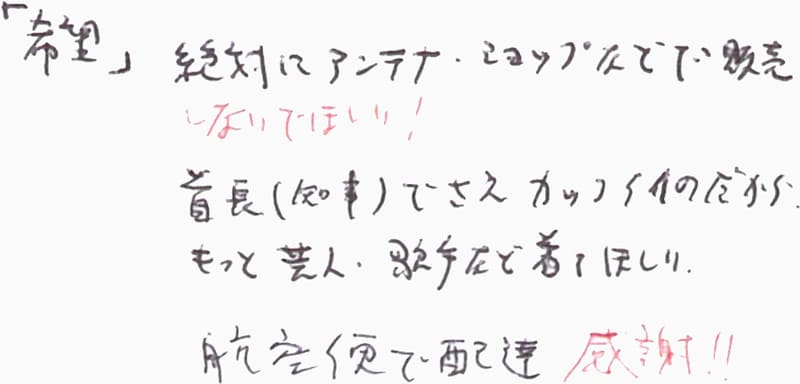 「希望」 絶対にアンテナ・ショップなどで販売
しないでほしい！
首長(知事)でさえカッコイイのだから、
もっと芸人・歌手など着てほしい。
航空便で配達 感謝!!